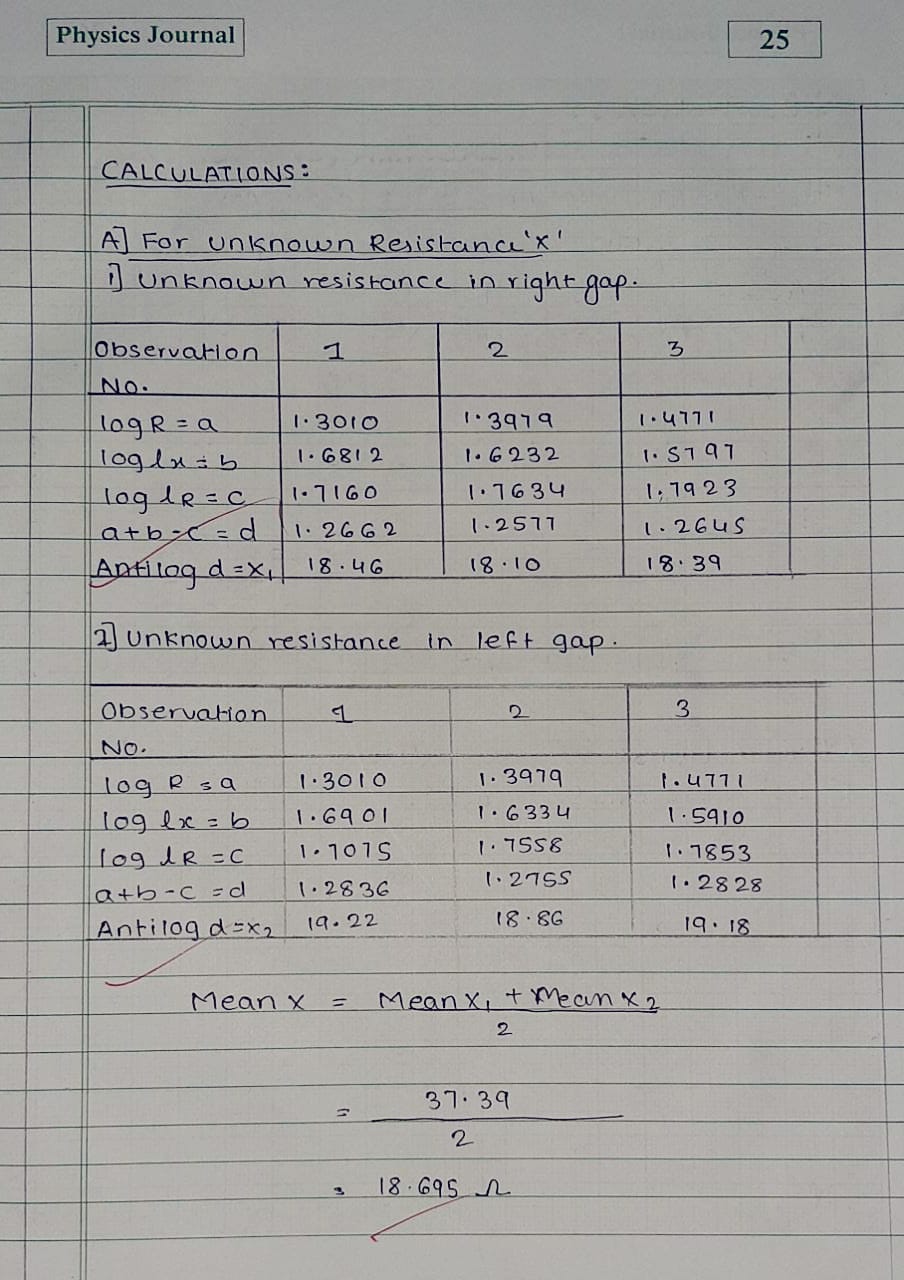 Physics Journal
25
CALCULATIONS:
A] For Unknown Resistance 'x'
1] Unknown resistance in right gap.
Observation No. 1 2 3
log R = a 1.3010 1.3979 1.4771
log lx = b 1.6812 1.6232 1.5797
log lR = c 1.7160 1.7634 1.7923
a+b-c = d 1.2662 1.2577 1.2645
Antilog d = x₁ 18.46 18.10 18.39
2] Unknown resistance in left gap.
Observation No. 1 2 3
log R = a 1.3010 1.3979 1.4771
log lx = b 1.6901 1.6334 1.5910
log lR = C 1.7075 1.7558 1.7853
a+b-c = d 1.2836 1.2755 1.2828
Antilog d = x₂ 19.22 18.86 19.18
Mean x = Mean x₁ + Mean x₂
2
= 37.39
2
= 18.695 Ω